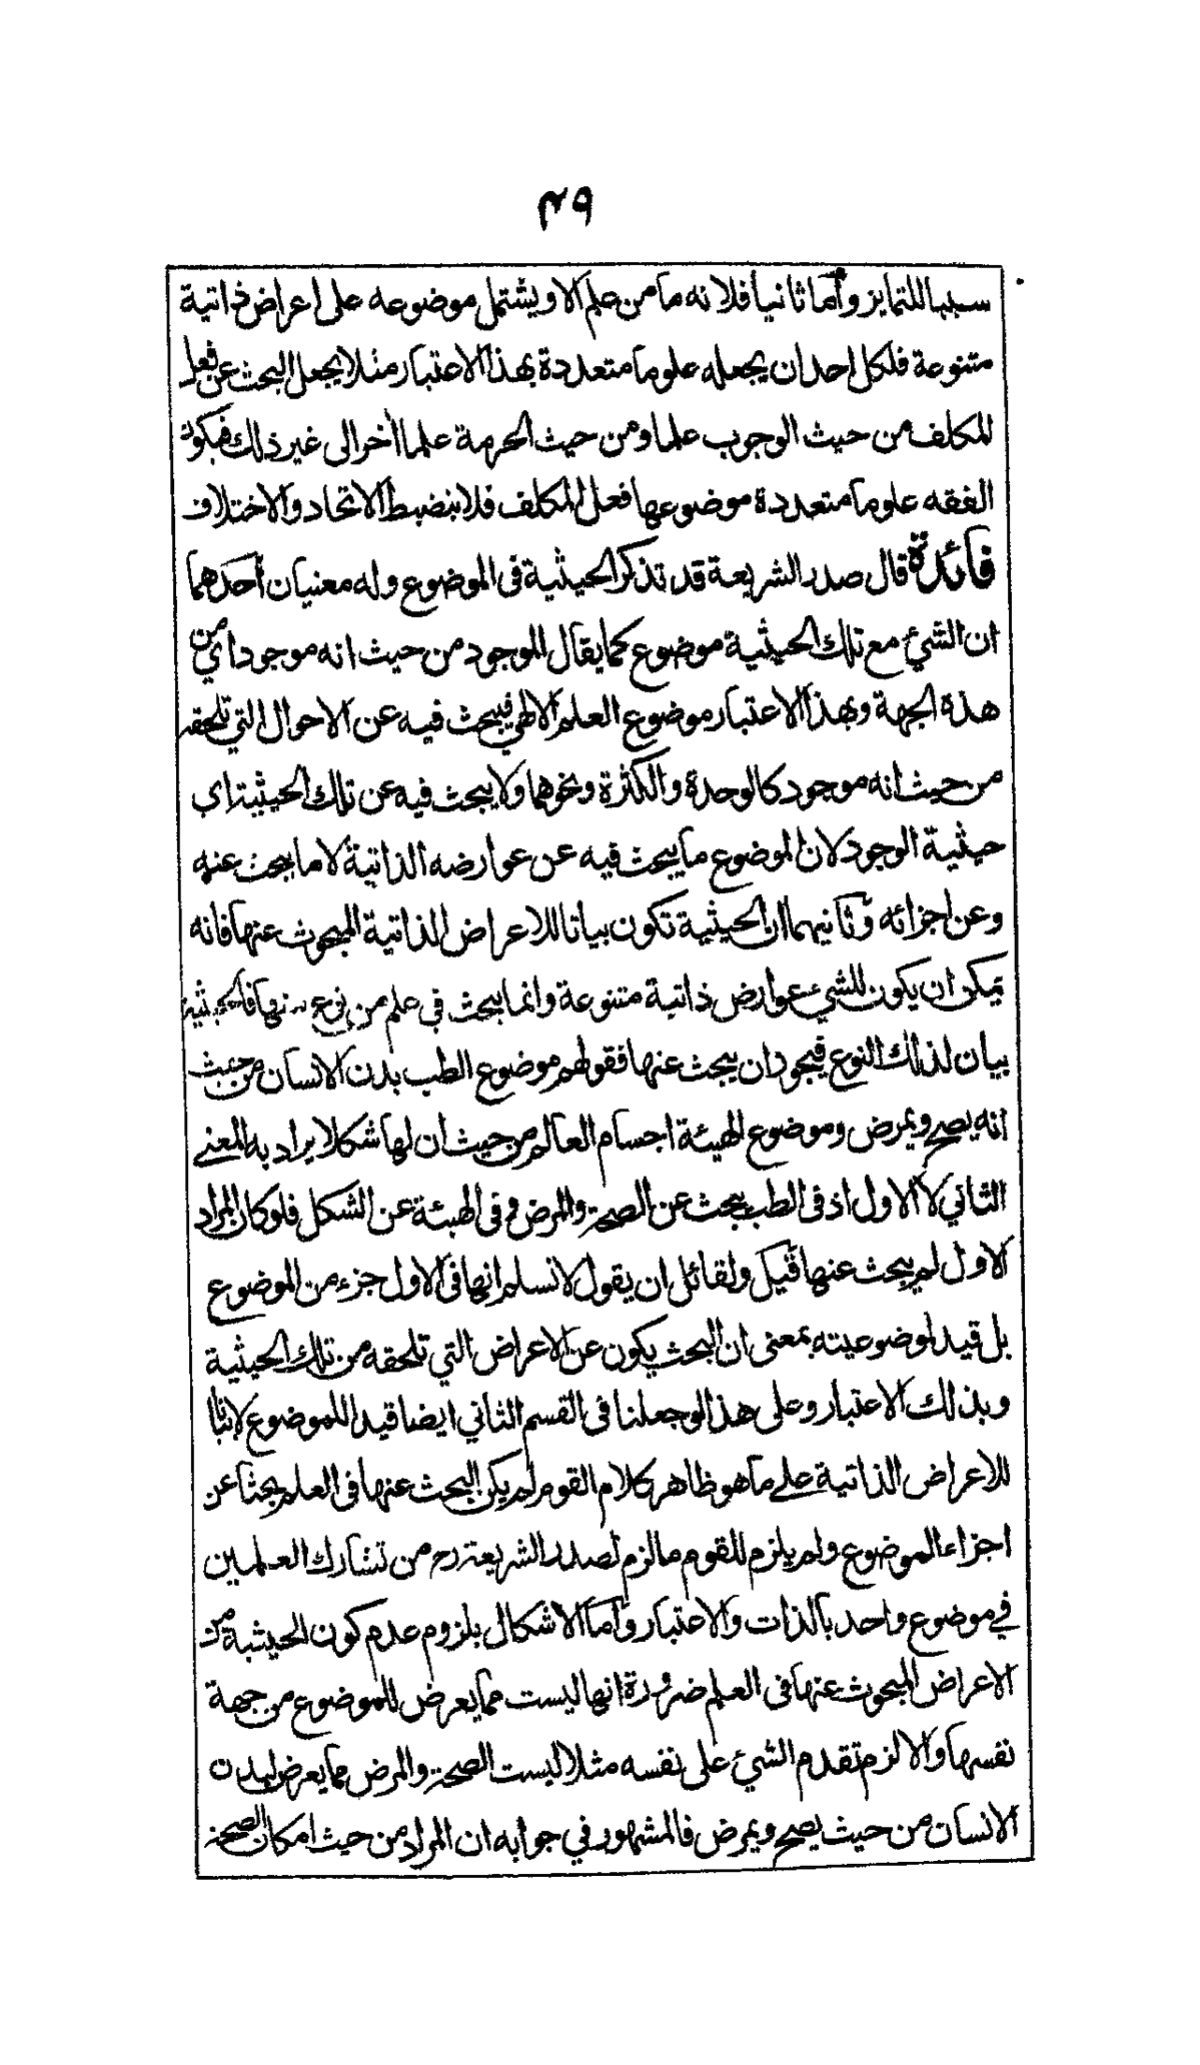 ٤٩
سببا للتمايز وأما ثانيا فلانه ما من علم الا ويشتمل موضوعه على اعراض ذاتية
متنوعة فلكل احد ان يجعله علوما متعددة بهذا الاعتبار مثلا يجعل البحث عن فعل
المكلف من حيث الوجوب علما ومن حيث الحرمة علما أخر الى غير ذلك فيكون
الفقه علوما متعددة موضوعها فعل المكلف فلا ينضبط الاتحاد والاختلاف
فائدة قال صدر الشريعة قد تذكر الحيثية فى الموضوع وله معنيان أحدهما
ان الشيئ مع تلك الحيثية موضوع كما يقال الموجود من حيث انه موجود اي من
هذه الجهة وبهذا الاعتبار موضوع العلم الالهي فيبحث فيه عن الاحوال التي تلحقه
من حيث انه موجود كالوحدة والكثرة ونحوهما ولا يبحث فيه عن تلك الحيثية اى
حيثية الوجود لان الموضوع ما يبحث فيه عن عوارضه الذاتية لا ما يبحث عنه
وعن اجزائه وثانيهما ان الحيثية تكون بيانا للاعراض الذاتية المبحوث عنها فانه
يمكن ان يكون للشيئ عوارض ذاتية متنوعة وانما يبحث في علم من نوع منها فالحيثية
بيان لذلك النوع فيجوز ان يبحث عنها فقولهم موضوع الطب بدن الانسان من حيث
انه يصح ويمرض وموضوع الهيئة اجسام العالم من حيث ان لها شكلا يراد به المعنے
الثاني لا الاول اذ فى الطب يبحث عن الصحة والمرض وفى الهيئة عن الشكل فلو كان المراد
الاول لم يبحث عنها قيل ولقائل ان يقول لا نسلم انها فى الاول جزء من الموضوع
بل قيد لموضوعيته بمعنى ان البحث يكون عن الاعراض التي تلحقه من تلك الحيثية
وبذلك الاعتبار وعلى هذا لو جعلنا فى القسم الثاني ايضا قيدا للموضوع لا بيانا
للاعراض الذاتية علے ما هو ظاهر كلام القوم لم يكن البحث عنها فى العلم بحثا عن
اجزاء الموضوع ولم يلزم للقوم ما لزم لصدر الشريعة رح من تشارك العلمين
في موضوع واحد بالذات والاعتبار وأما الاشكال بلزوم عدم كون الحيثية من
الاعراض المبحوث عنها فى العلم ضرورة انها ليست مما يعرض للموضوع من جهة
نفسها والا لزم تقدم الشيئ على نفسه مثلا ليست الصحة والمرض مما يعرض لبدن
الانسان من حيث يصح ويمرض فالمشهور في جوابه ان المراد من حيث امكان الصحة